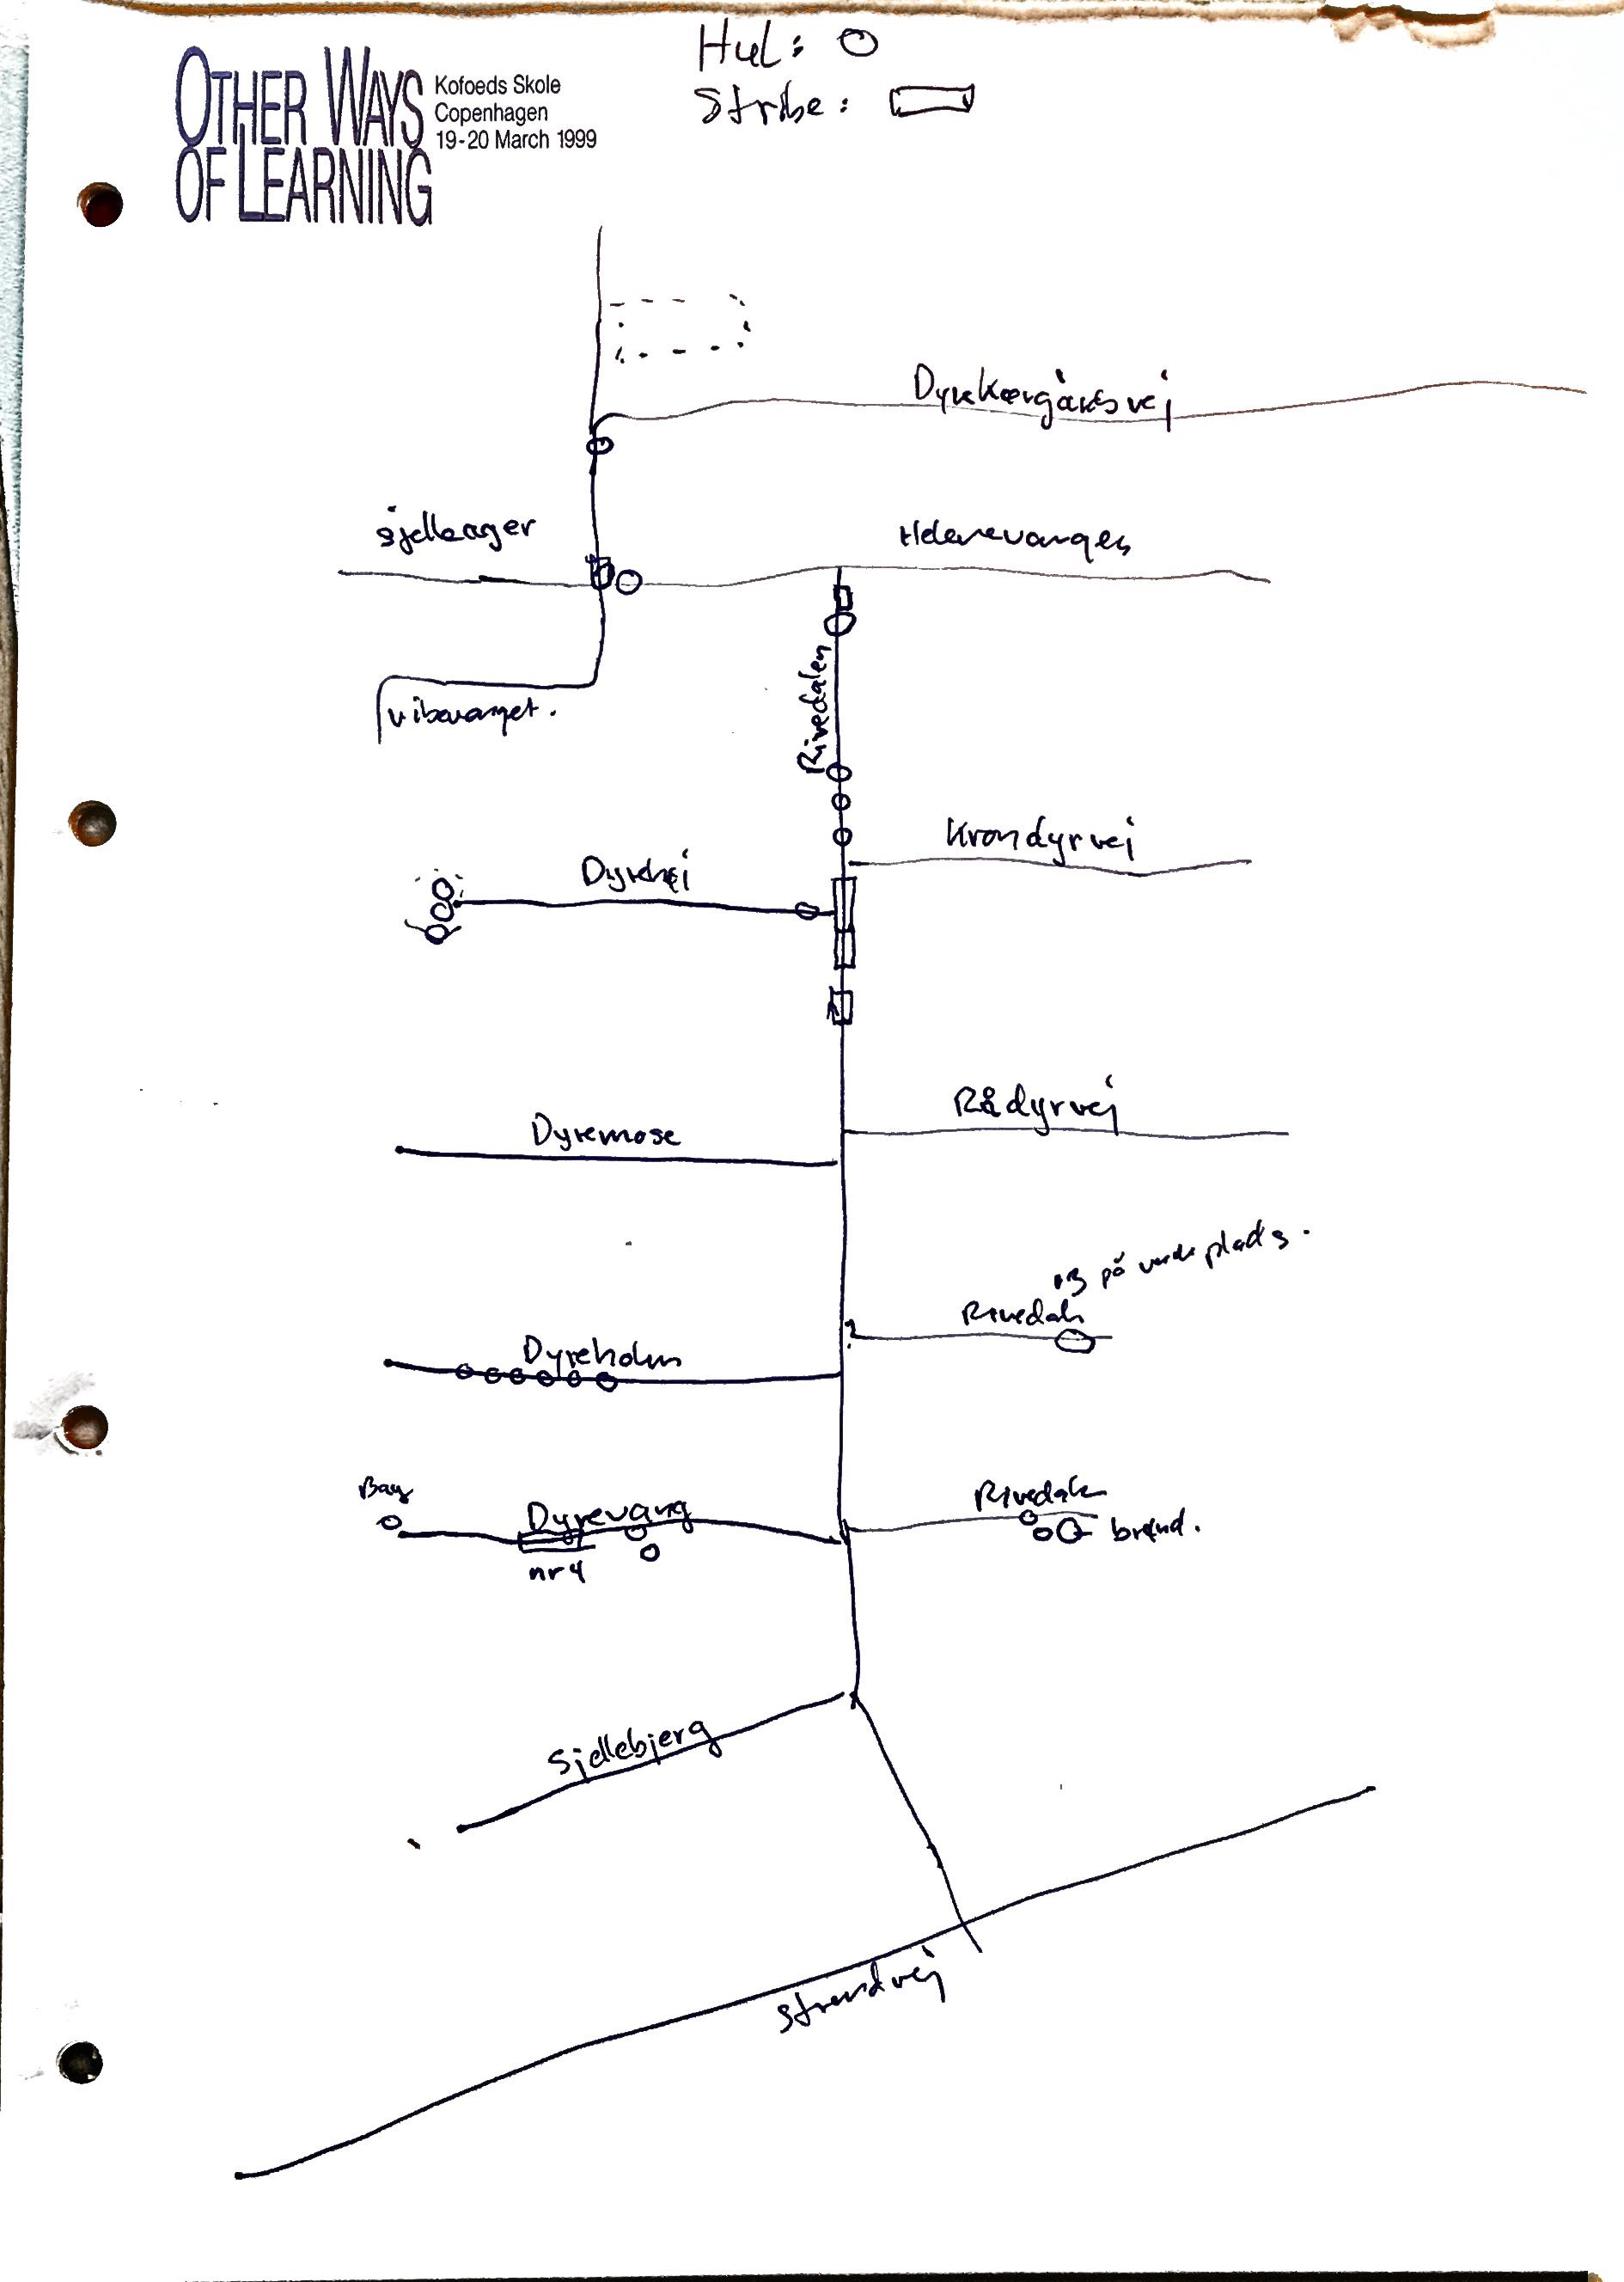 Hul:
Stribe:
OTHER WAYS
OF LEARNING
Kofoeds Skole
Copenhagen
19-20 March 1999
Dyrekærgårdsvej
sjelleager
Helenevanges
vibevanget.
Rivedalen
Krondyrvej
Dyrehej
Rådyrvej
Dyremose
på vende plads.
Rivedals
Dyreholm
Bag
Dyrevang
nr 4
Rivedals
brønd.
Sjellebjerg
Strandvej